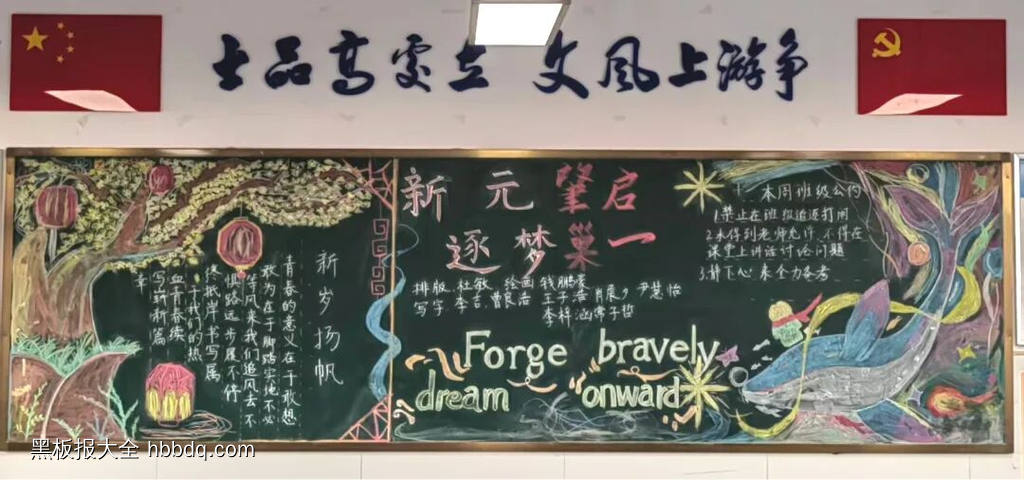 士品高处立 文风上游争
新岁扬帆
青春的意义在于敢想
敢为在于脚踏实地不必
等风来我们追风去不
惧路远步履不停
终抵岸书写属
于我们的热
血青春续
写新篇
章
新元肇启
逐梦巢一
排版 杜敏 绘画 钱鹏
写字 李吉 曹良浩 王子浩 肖展 尹慧怡
李梓涵 常子哲
Forge bravely
dream onward
本周班级公约
1.禁止在班级追逐打闹
2.未得到老师允许,不得在
课堂上讲话讨论问题
3.静下心来全力备考
黑板报大全 hbbdq.com